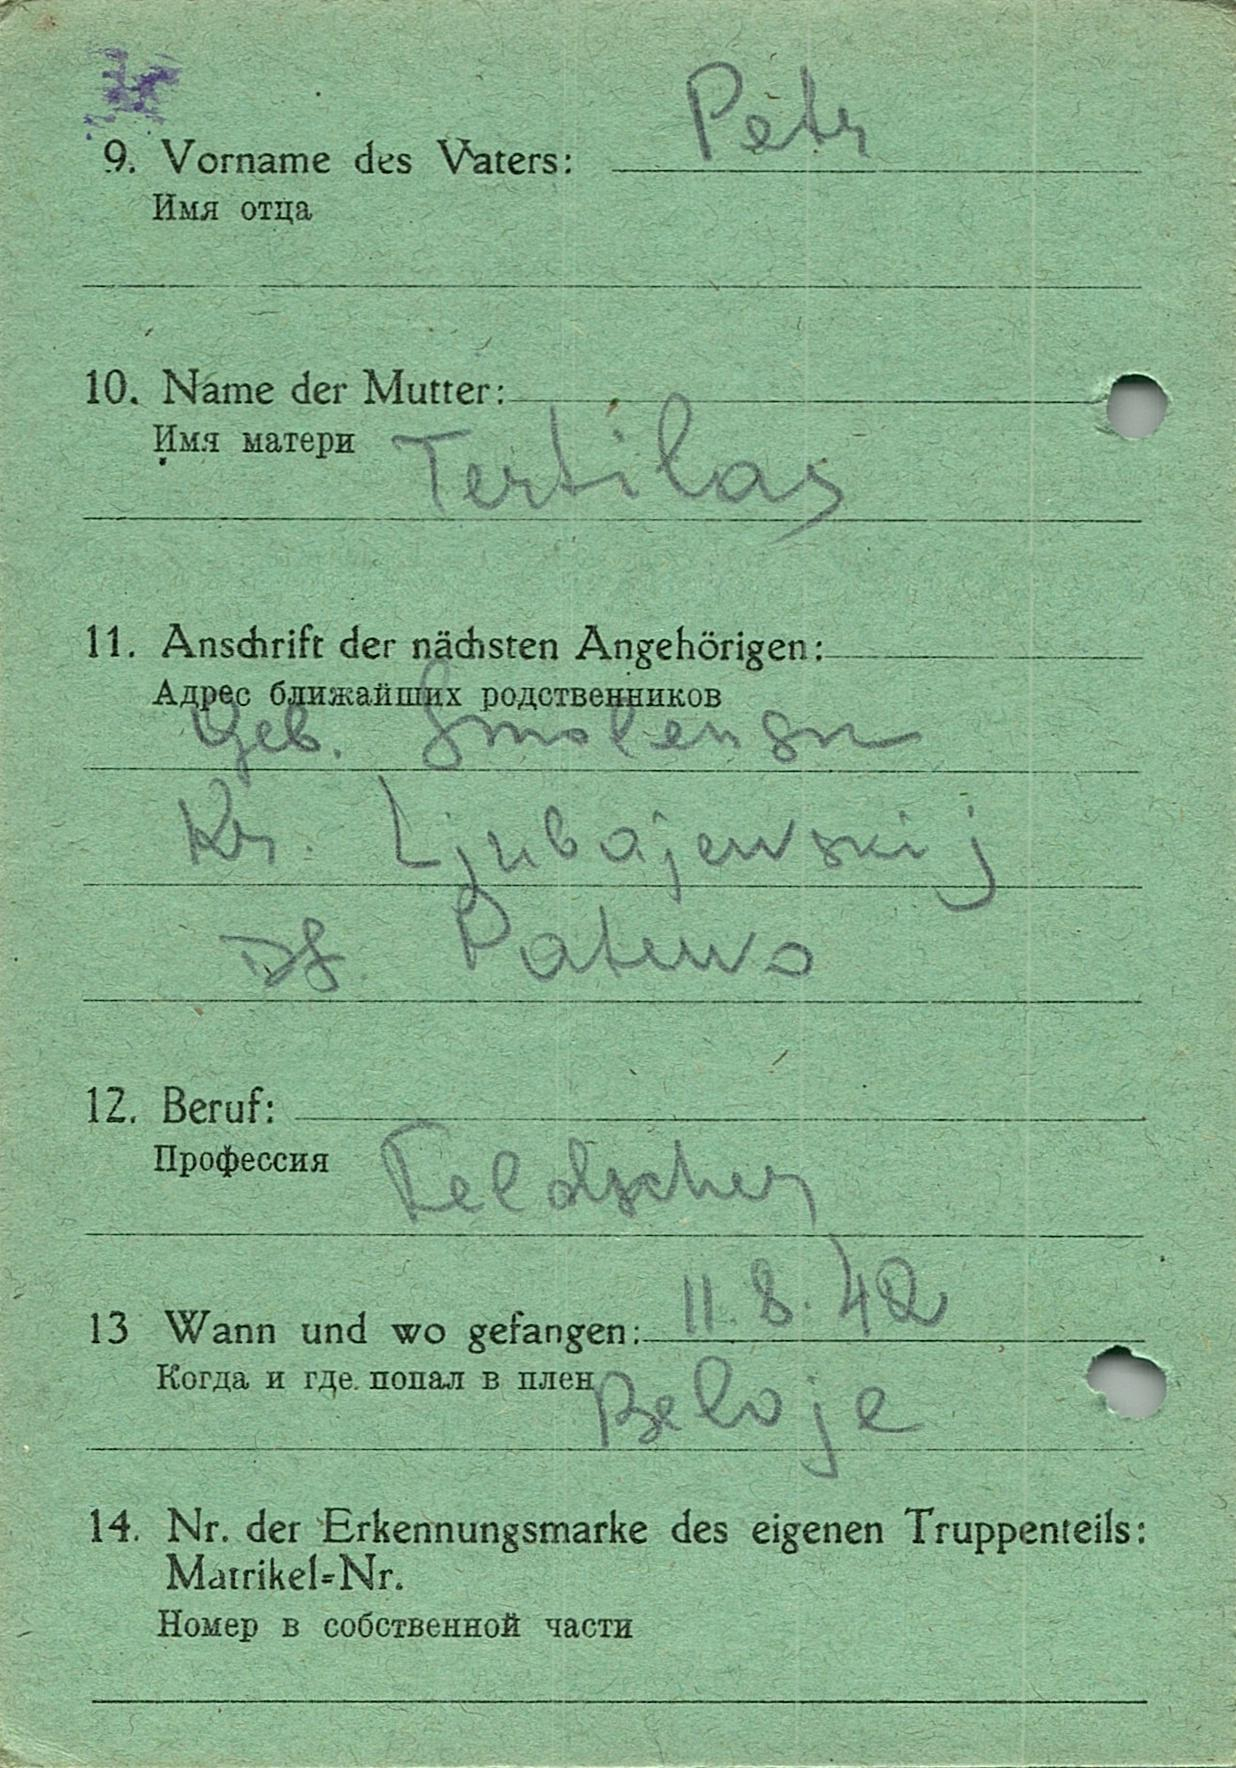 9. Vorname des Vaters: Petr
Имя отца
10. Name der Mutter:
Имя матери Tertilas
11. Anschrift der nächsten Angehörigen:
Адрес ближайших родственников
Geb. Smolensk
Kr. Ljubajewskij
Df.
12. Beruf:
Профессия Feldscher
13 Wann und wo gefangen: 11.8.42
Когда и где попал в плен Beloje
14. Nr. der Erkennungsmarke des eigenen Truppenteils:
Matrikel-Nr.
Номер в собственной части